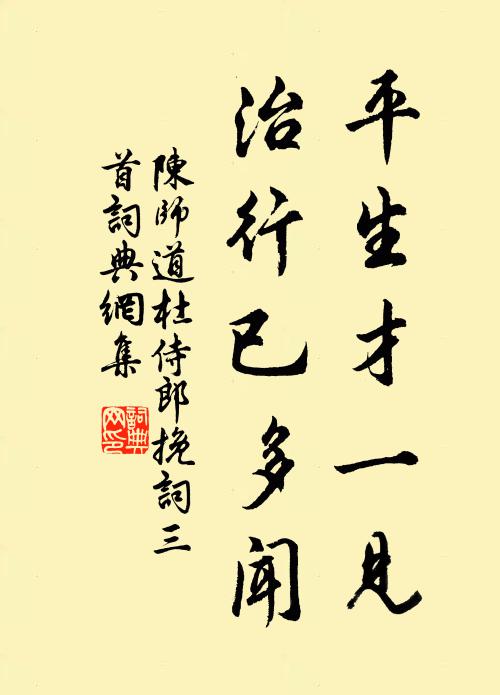 平生才一見
治行已多聞
陳師道杜侍郎挽詞三
首詞典網集
詞典網印